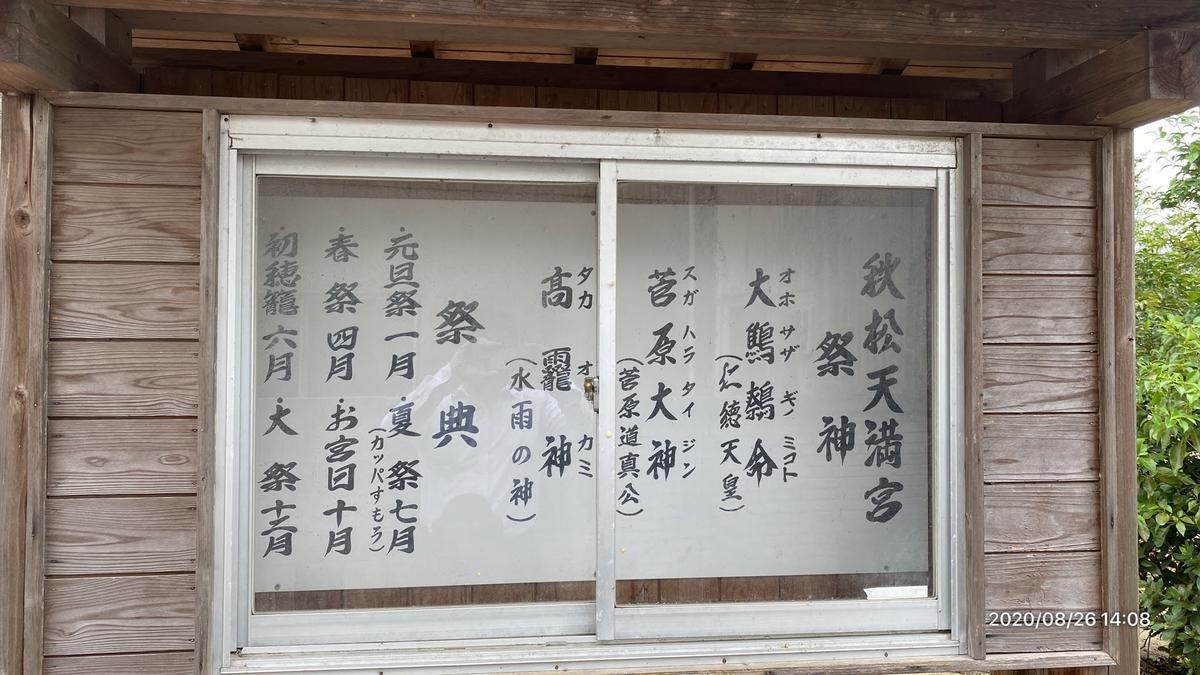 秋松天満宮
祭神
大鷦鷯命
オホサザギノミコト
（仁徳天皇）
菅原大神
スガハラタイジン
（菅原道真公）
高龗神
タカオカミ
（水雨の神）
祭典
・元旦祭一月
・夏祭七月
（カッパすもう）
・春祭四月
・お宮日十月
・初穂籠六月
・大祭十二月
2020/08/26 14:08